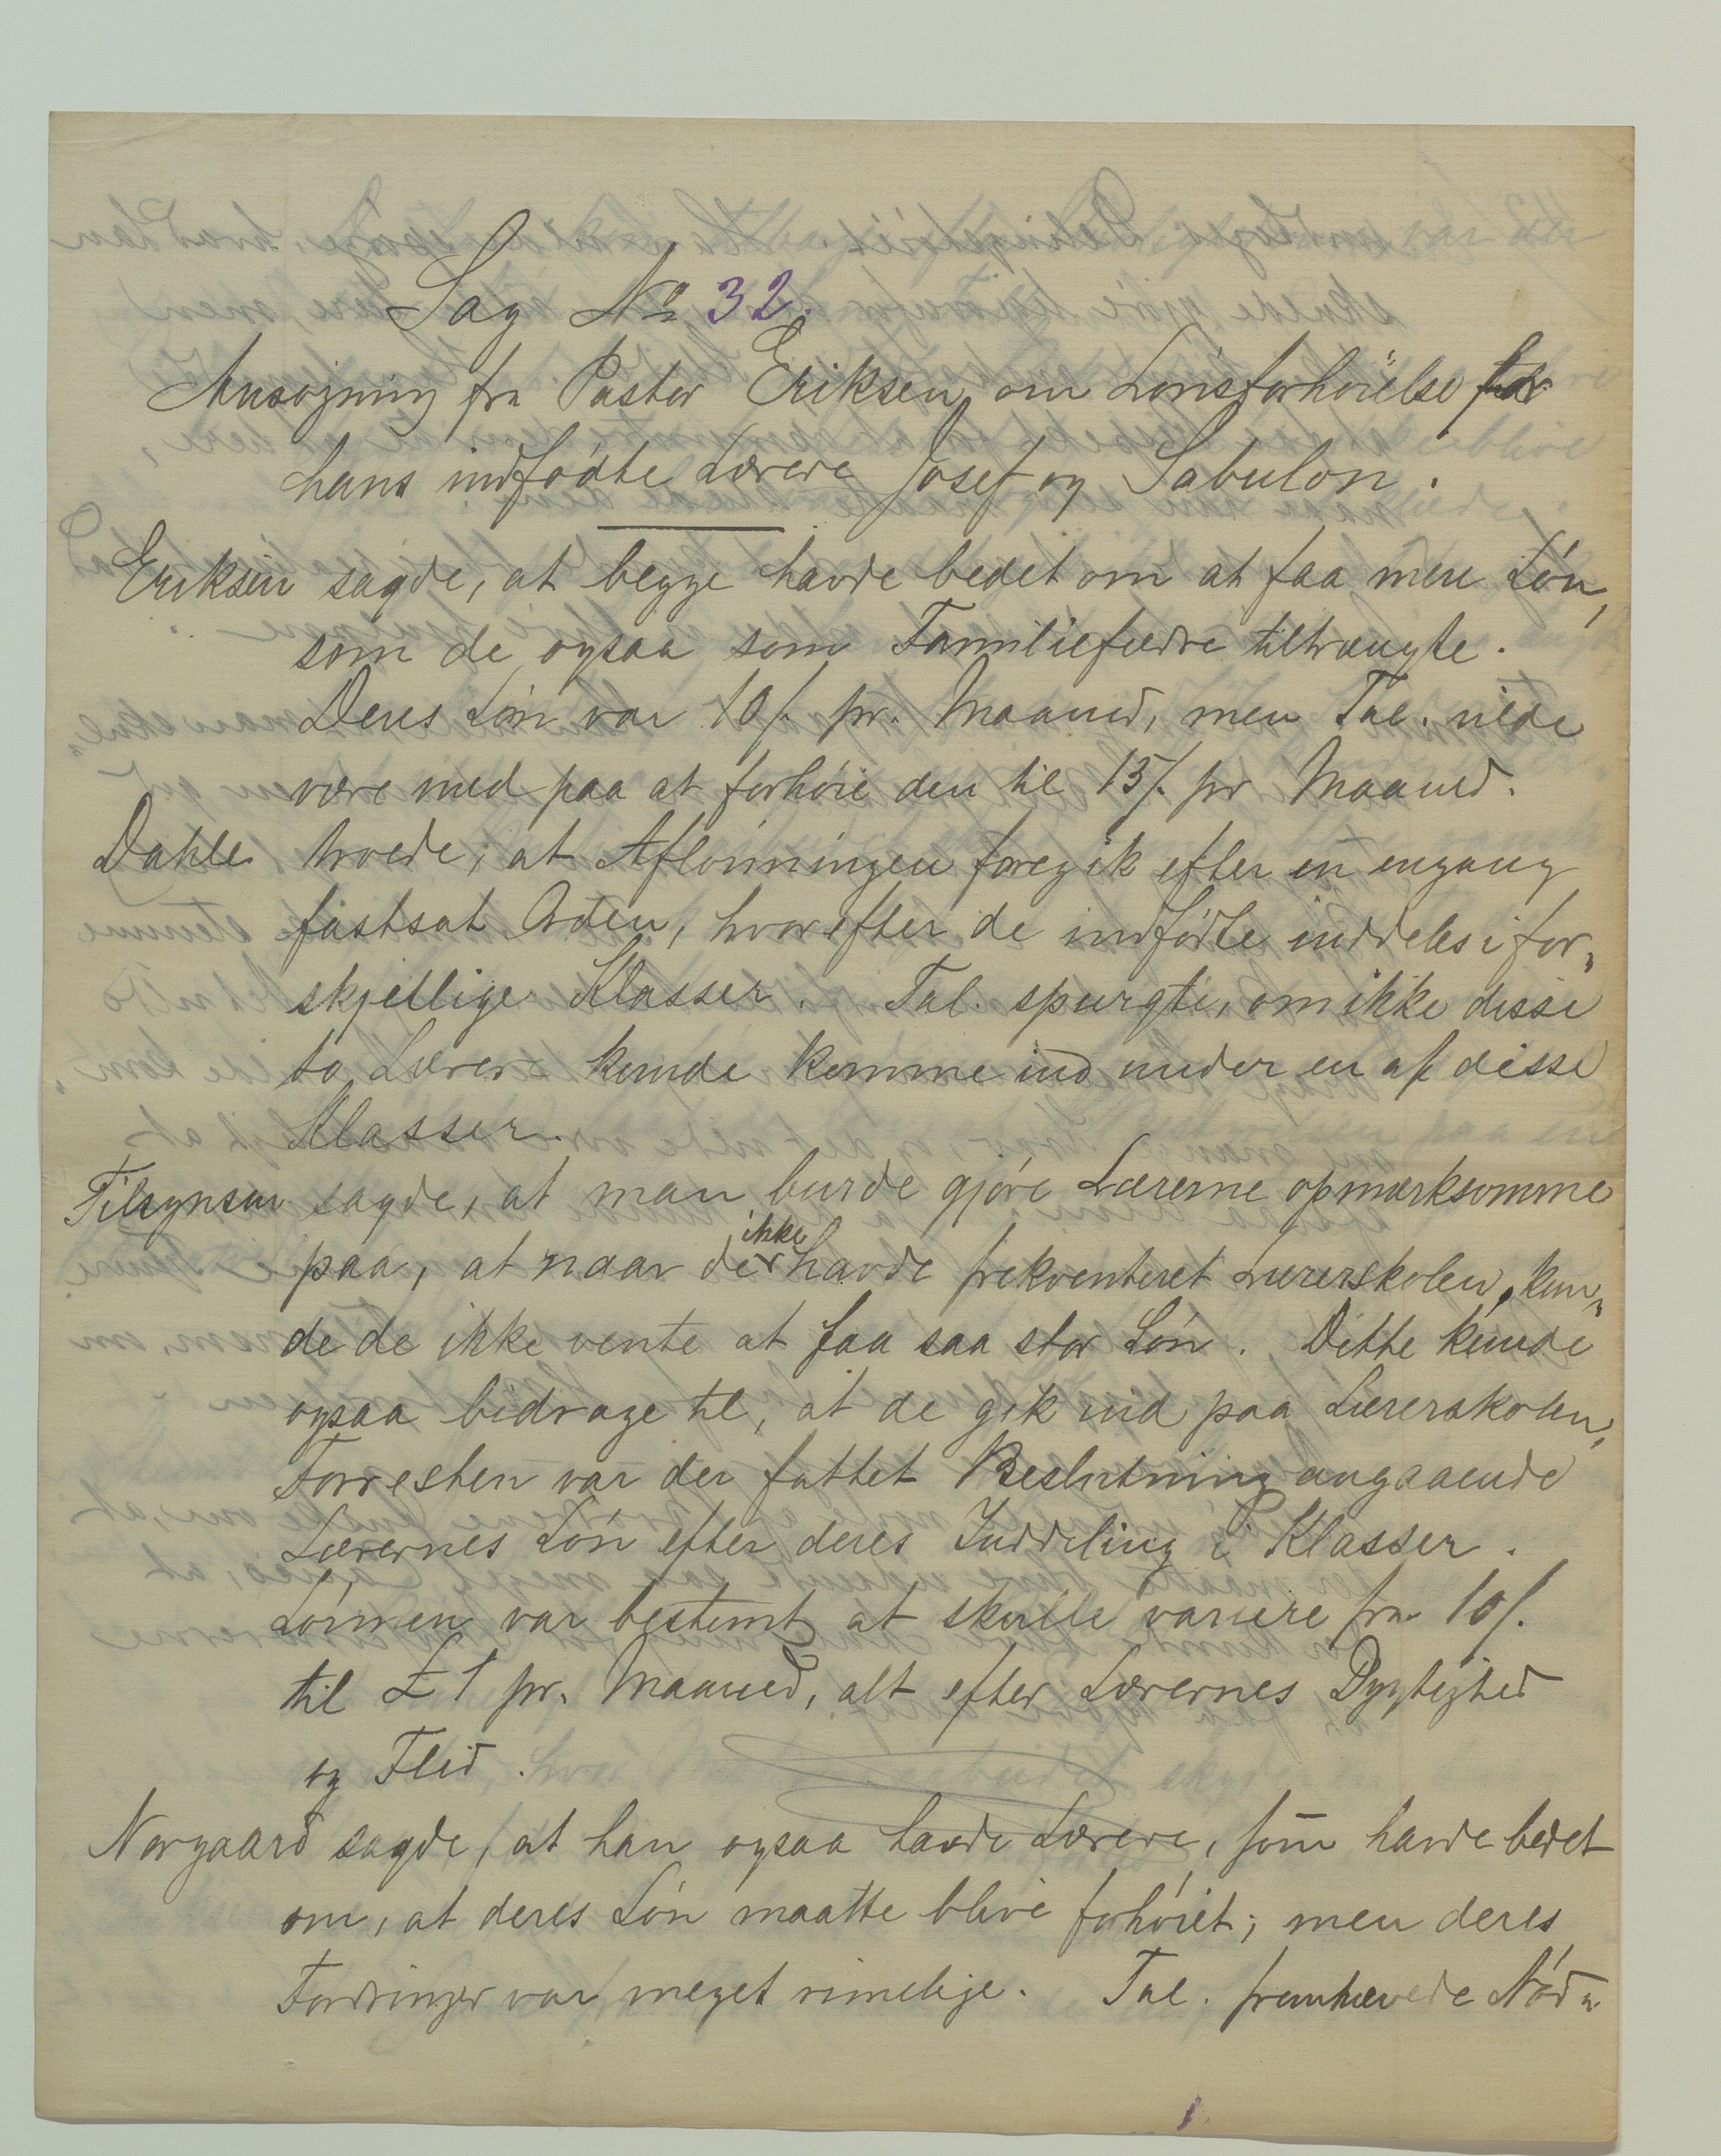 Sag No 32.
Ansøgning fra Pastor Eriksen om Lønsforhøielse for
hans indfødte Lærere Josef og Sabulon.
Eriksen sagde, at begge havde bedet om at faa mere Løn,
som de ogsaa som Familiefædre tiltrængte.
Deres Løn var 10/. pr. Maaned, men Tal. vilde
være med paa at forhøie den til 15/. pr Maaned.
Dahle troede, at Aflønningen foregik efter en engang
fastsat Orden, hvorefter de indfødte inddeles i for„
skjellige Klasser. Tal. spurgte, om ikke disse
to Lærere kunde komme ind under en af disse
Klasser.
Tilsynsm sagde, at man burde gjøre Lærerne opmærksomme
paa, at naar de ikke havde frekventeret Lærerskolen, kun„
de de ikke vente at faa saa stor Løn. Dette kunde
ogsaa bidrage til, at de gik ind paa Lærerskolen.
Forresten var der fattet Beslutning angaaende
Lærernes Løn efter deres Inddeling i Klasser.
Lønnen var bestemt at skulle variere fra 10/.
til £1 pr. Maaned, alt efter Lærernes Dygtighed
og Flid.
Norgaard sagde, at han ogsaa havde Lærere, som havde bedet
om, at deres Løn maatte blive forhøiet; men deres
Fordringer var meget rimelige. Tal. fremhævede Nød„